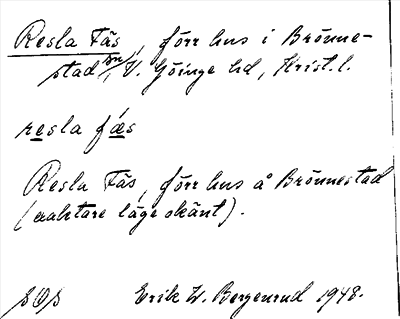 Resla Fäs, förr hus i Brönne-
stad sn, V. Göinge hd, Krist. l.
resla fǽs
Resla Fäs, förr hus å Brönnestad
(exaktare läge okänt).
Erik W. Bergenrud 1948.